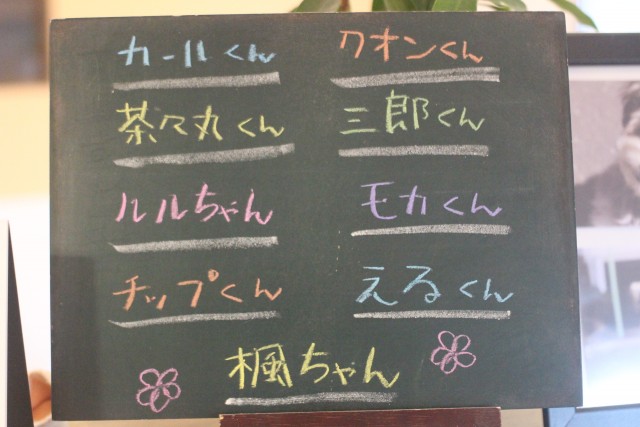 カールくん
クオンくん
茶々丸くん
三郎くん
ルルちゃん
モカくん
チップくん
えるくん
楓ちゃん